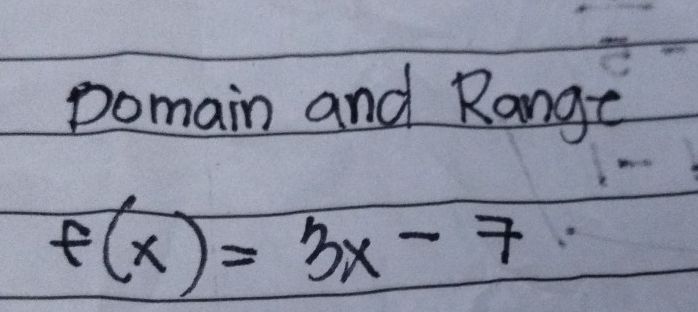 Domain and Range
f(x) = 3x - 7